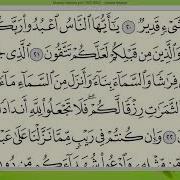 شَىْءٍ قَدِيرٌ ٢٠ يَٰٓأَيُّهَا ٱلنَّاسُ ٱعْبُدُوا۟ رَبَّكُ
وَٱلَّذِينَ مِن قَبْلِكُمْ لَعَلَّكُمْ تَتَّقُونَ ٢١
فِرَٰشًا وَٱلسَّمَآءَ بِنَآءً وَأَنزَلَ مِنَ ٱلسَّمَآءِ
ٱلثَّمَرَٰتِ رِزْقًا لَّكُمْ فَلَا تَجْعَلُوا۟ لِلَّهِ أَندَادًا
٢٢ وَإِن كُنتُمْ فِى رَيْبٍ مِّمَّا نَزَّلْنَا عَلَىٰ
مِّن مِّثْلِهِۦ وَٱدْعُوا۟ شُهَدَآءَكُم مِّن